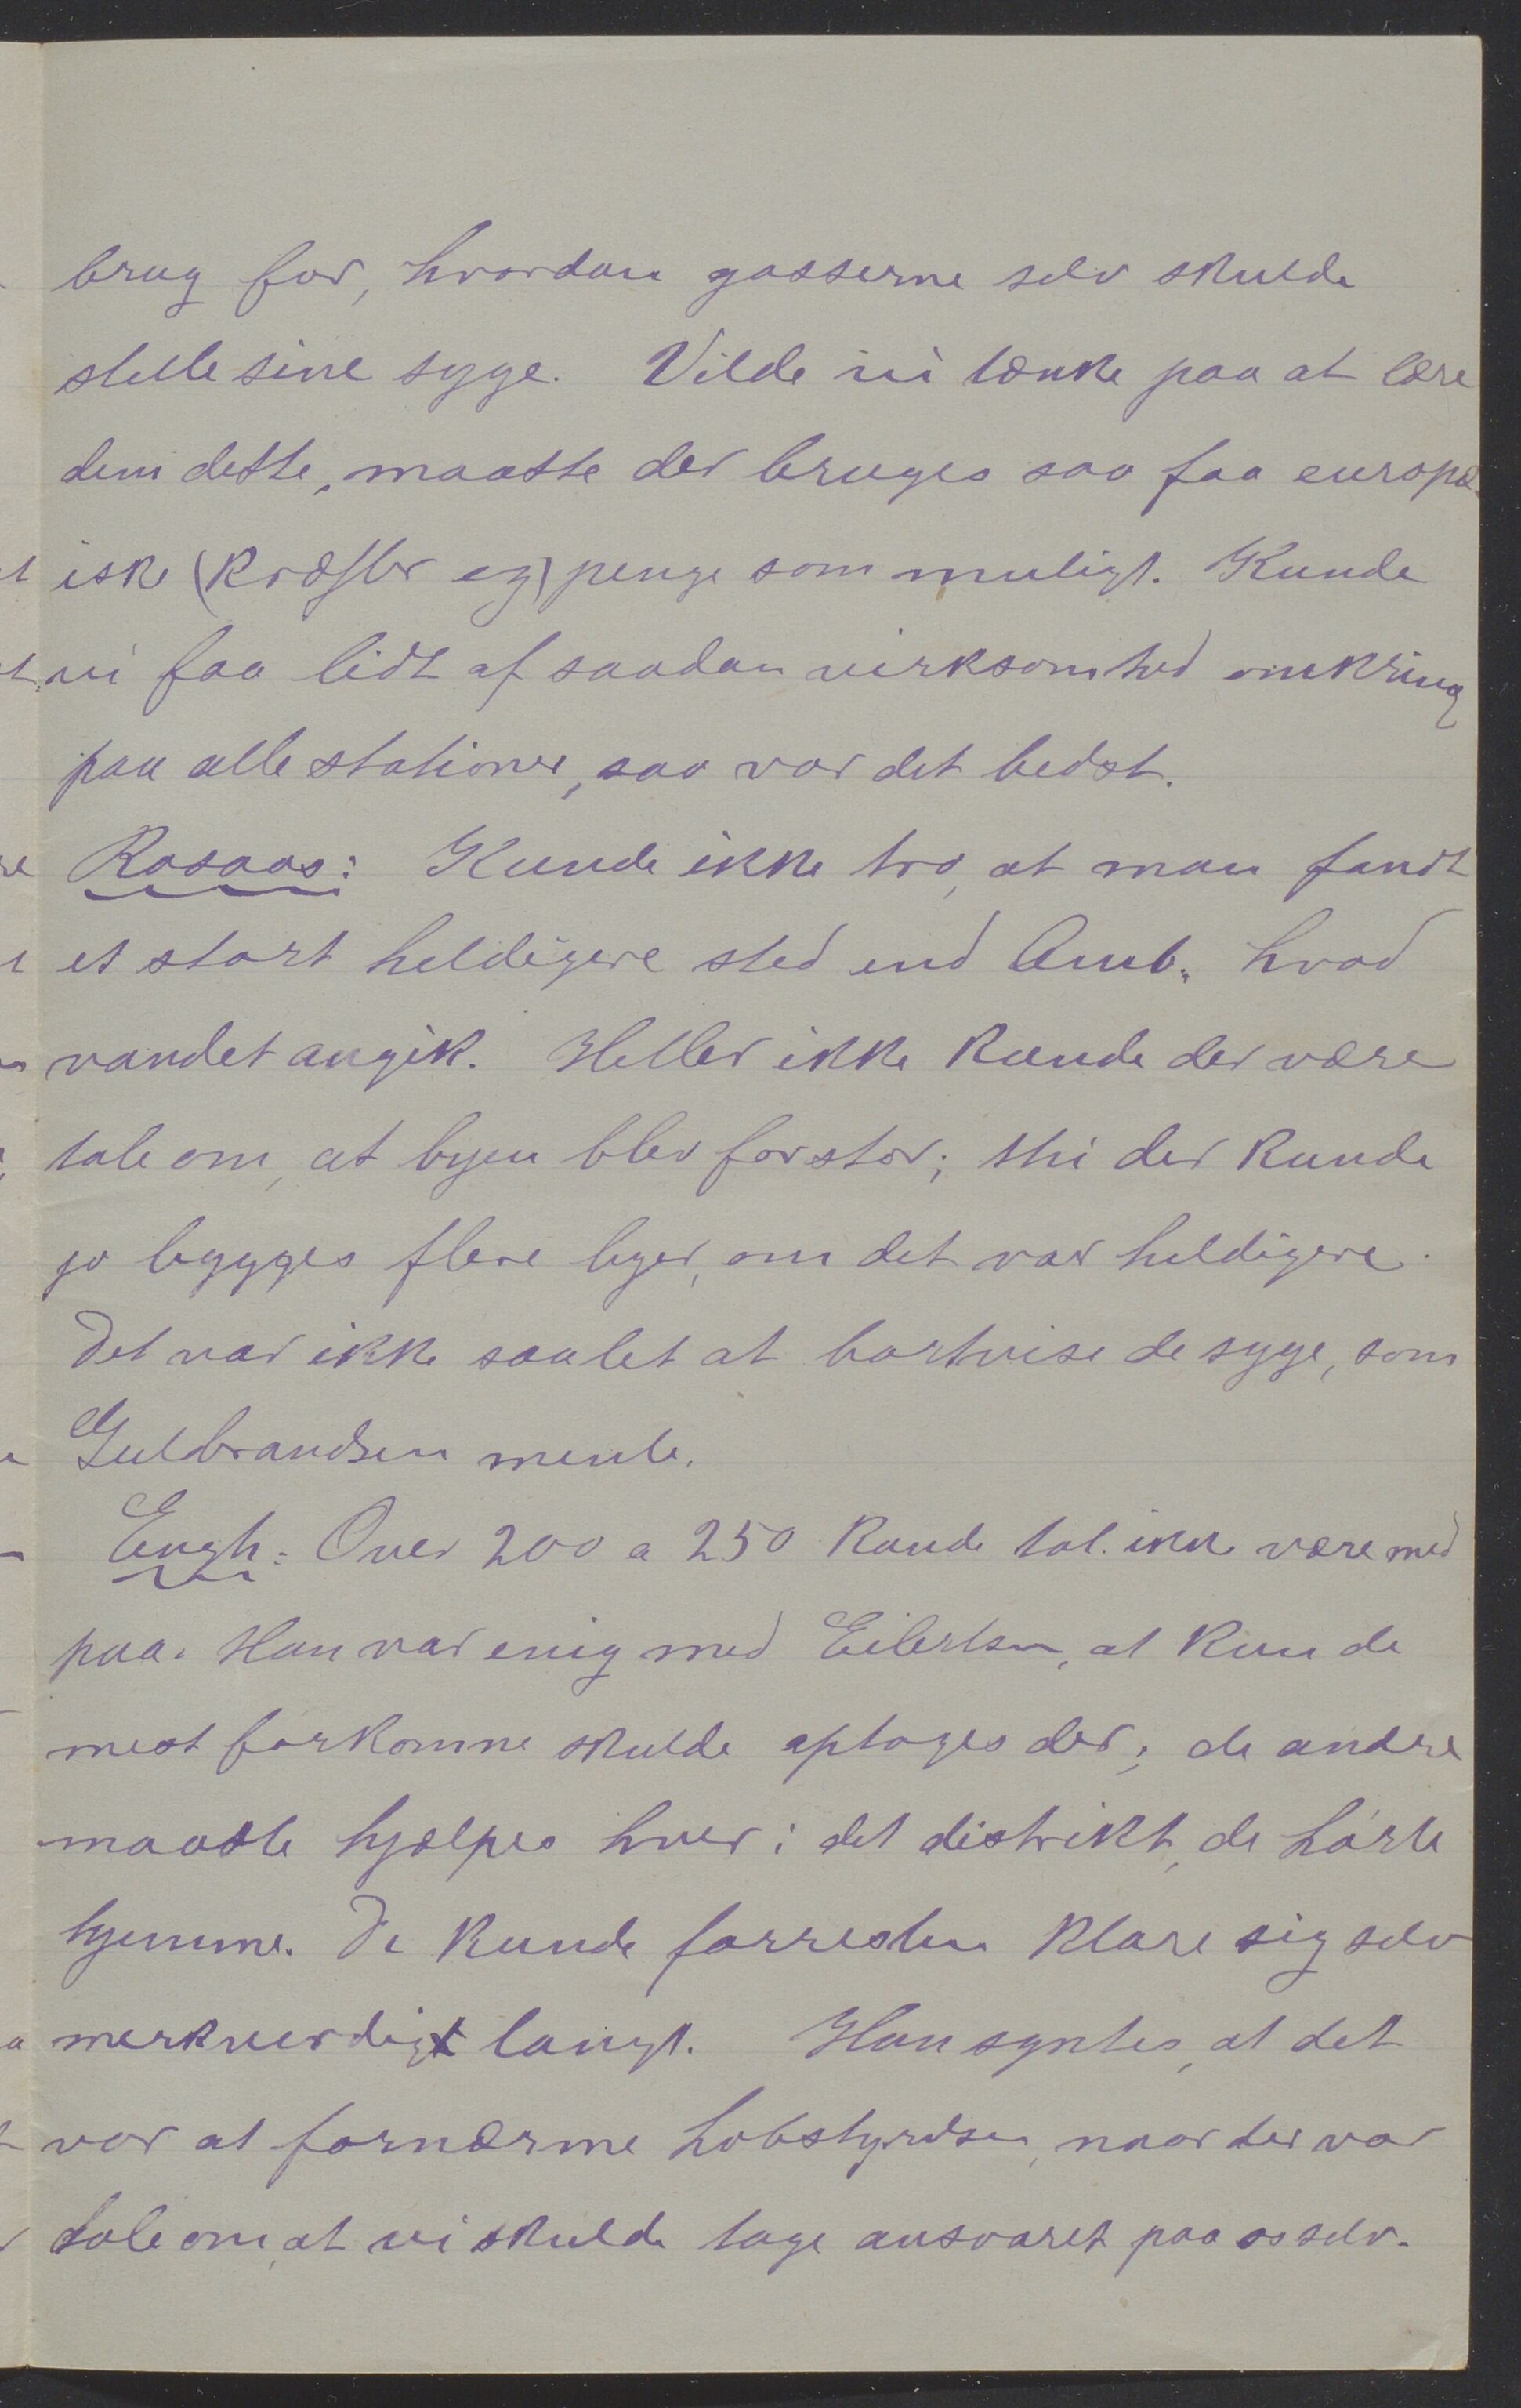 brug for, hvordan gasserne selv skulde
stelle sine syge. Vilde vi tænke paa at lære
dem dette, maatte der bruges saa faa europæ-
iske (kræfter og) penge som muligt. Kunde
vi faa lidt af saadan virksomhed omkring
paa alle stationer, saa var det bedst.
Rosaas: Kunde ikke tro, at man fandt
et stort heldigere sted end Amb. hvad
vandet angik. Heller ikke kunde der være
tale om, at byen blev for stor; thi der kunde
jo bygges flere byer, om det var heldigere.
Det var ikke saa let at bortvise de syge, som
Gulbrandsen mente.
Engh: Over 200 a 250 kunde tal. ikke være med
paa. Han var enig med Eilertsen, at kun de
mest forkomne skulde optages der; de andre
maatte hjælpes hver i det distrikt, de hørte
hjemme. De kunde forresten klare sig selv
merkverdigt langt. Han syntes, at det
var at fornærme hovstyrelsen, naar der var
tale om, at vi skulde tage ansvaret paa os selv.